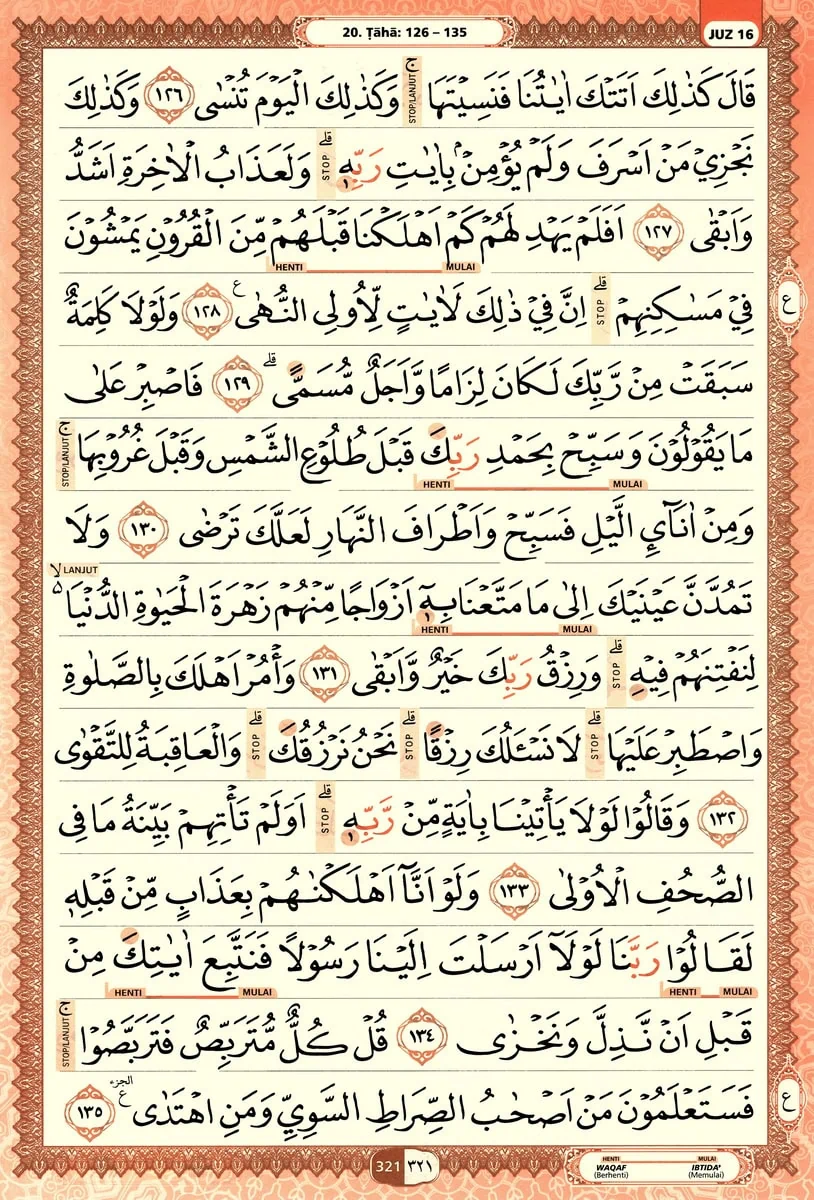 20. Ṭāhā: 126 – 135
JUZ 16
قَالَ كَذٰلِكَ اَتَتْكَ اٰيٰتُنَا فَنَسِيْتَهَا ۚ وَكَذٰلِكَ الْيَوْمَ تُنْسٰى ١٢٦ وَكَذٰلِكَ
STOP/LANJUT
نَجْزِيْ مَنْ اَسْرَفَ وَلَمْ يُؤْمِنْۢ بِاٰيٰتِ رَبِّهٖ ۗ وَلَعَذَابُ الْاٰخِرَةِ اَشَدُّ
STOP
وَاَبْقٰى ١٢٧ اَفَلَمْ يَهْدِ لَهُمْ كَمْ اَهْلَكْنَا قَبْلَهُمْ مِّنَ الْقُرُوْنِ يَمْشُوْنَ
MULAI HENTI
فِيْ مَسٰكِنِهِمْ ۗ اِنَّ فِيْ ذٰلِكَ لَاٰيٰتٍ لِّاُولِى النُّهٰى ع ١٢٨ وَلَوْلَا كَلِمَةٌ
STOP
ع
سَبَقَتْ مِنْ رَّبِّكَ لَكَانَ لِزَامًا وَّاَجَلٌ مُّسَمًّى ۗ ١٢٩ فَاصْبِرْ عَلٰى
مَا يَقُوْلُوْنَ وَسَبِّحْ بِحَمْدِ رَبِّكَ قَبْلَ طُلُوْعِ الشَّمْسِ وَقَبْلَ غُرُوْبِهَا ۚ
STOP/LANJUT
MULAI HENTI
وَمِنْ اٰنَاۤئِ الَّيْلِ فَسَبِّحْ وَاَطْرَافَ النَّهَارِ لَعَلَّكَ تَرْضٰى ١٣٠ وَلَا
LANJUT
تَمُدَّنَّ عَيْنَيْكَ اِلٰى مَا مَتَّعْنَا بِهٖٓ اَزْوَاجًا مِّنْهُمْ زَهْرَةَ الْحَيٰوةِ الدُّنْيَا ۙ
MULAI HENTI
لِنَفْتِنَهُمْ فِيْهِ ۗ وَرِزْقُ رَبِّكَ خَيْرٌ وَّاَبْقٰى ١٣١ وَأْمُرْ اَهْلَكَ بِالصَّلٰوةِ
STOP
وَاصْطَبِرْ عَلَيْهَا ۗ لَا نَسْـَٔلُكَ رِزْقًا ۗ نَحْنُ نَرْزُقُكَ ۗ وَالْعَاقِبَةُ لِلتَّقْوٰى
STOP STOP STOP
١٣٢ وَقَالُوْا لَوْلَا يَأْتِيْنَا بِاٰيَةٍ مِّنْ رَّبِّهٖ ۗ اَوَلَمْ تَأْتِهِمْ بَيِّنَةُ مَا فِى
STOP
الصُّحُفِ الْاُوْلٰى ١٣٣ وَلَوْ اَنَّآ اَهْلَكْنٰهُمْ بِعَذَابٍ مِّنْ قَبْلِهٖ
لَقَالُوْا رَبَّنَا لَوْلَآ اَرْسَلْتَ اِلَيْنَا رَسُوْلًا فَنَتَّبِعَ اٰيٰتِكَ مِنْ
MULAI HENTI MULAI HENTI
قَبْلِ اَنْ نَّذِلَّ وَنَخْزٰى ١٣٤ قُلْ كُلٌّ مُّتَرَبِّصٌ فَتَرَبَّصُوْا ۚ
STOP/LANJUT
الجزء
فَسَتَعْلَمُوْنَ مَنْ اَصْحٰبُ الصِّرَاطِ السَّوِيِّ وَمَنِ اهْتَدٰى ع ١٣٥
ع
321 ٣٢١
HENTI MULAI
WAQAF IBTIDA'
(Berhenti) (Memulai)